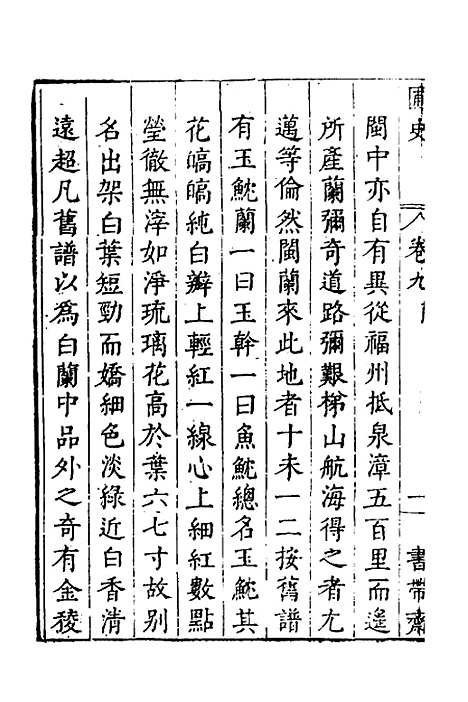 圃史 卷九 一 書帶齋
閩中亦自有異從福州抵泉漳五百里而遙
所產蘭彌奇道路彌艱梯山航海得之者尤
邁等倫然閩蘭來此地者十未一二按舊譜
有玉魫蘭一曰玉幹一曰魚魫總名玉魫其
花皜皜純白瓣上輕紅一線心上細紅數點
瑩徹無滓如淨琉璃花高於葉六七寸故別
名出架白葉短勁而嬌細色淡綠近白香清
遠超凡舊譜以為白蘭中品外之奇有金稜